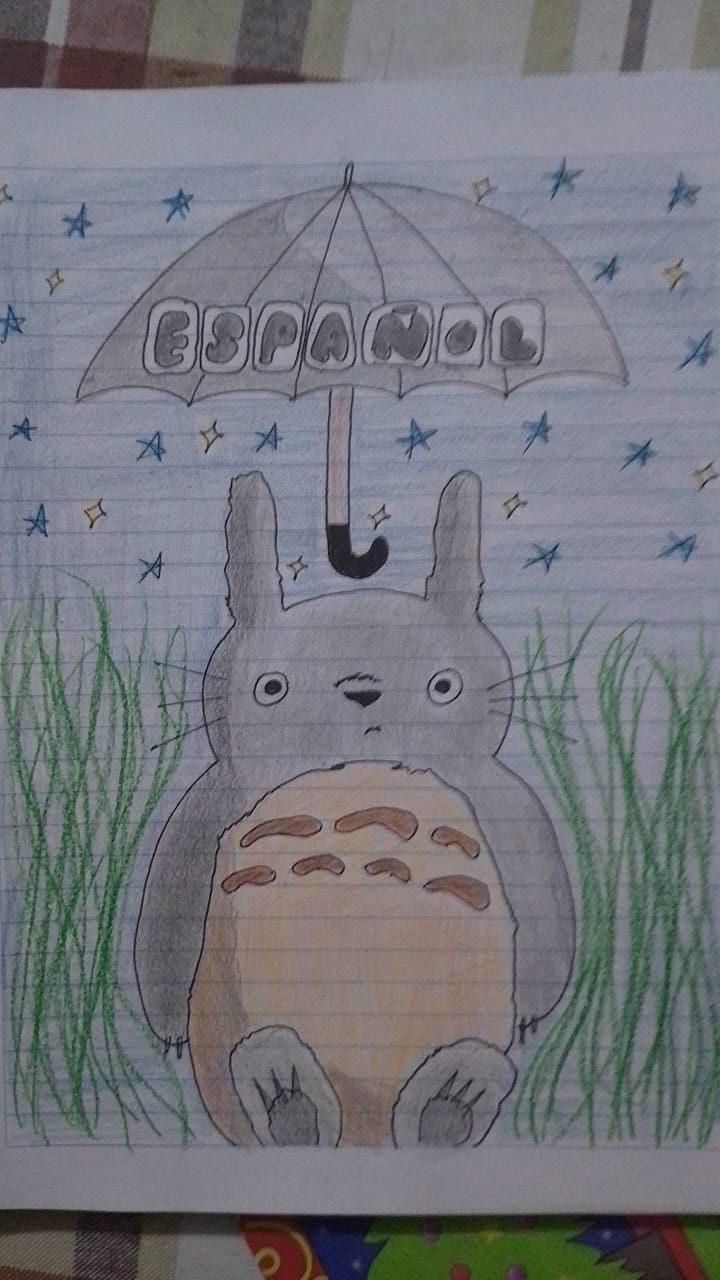 ESPAÑOL